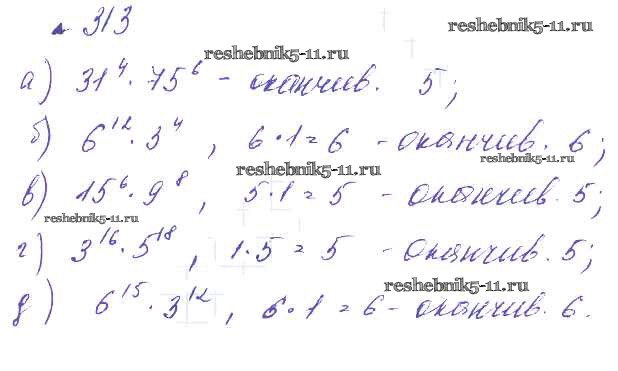 313
reshebnik5-11.ru
reshebnik5-11.ru
а) 31⁴ · 75⁶ - оканчив. 5;
б) 6¹² · 3⁴, 6 · 1 = 6 - оканчив. 6;
reshebnik5-11.ru
reshebnik5-11.ru
в) 15⁶ · 9⁸, 5 · 1 = 5 - оканчив. 5;
reshebnik5-11.ru
г) 3¹⁶ · 5¹⁸, 1 · 5 = 5 - оканчив. 5;
reshebnik5-11.ru
д) 6¹⁵ · 3¹², 6 · 1 = 6 - оканчив. 6.